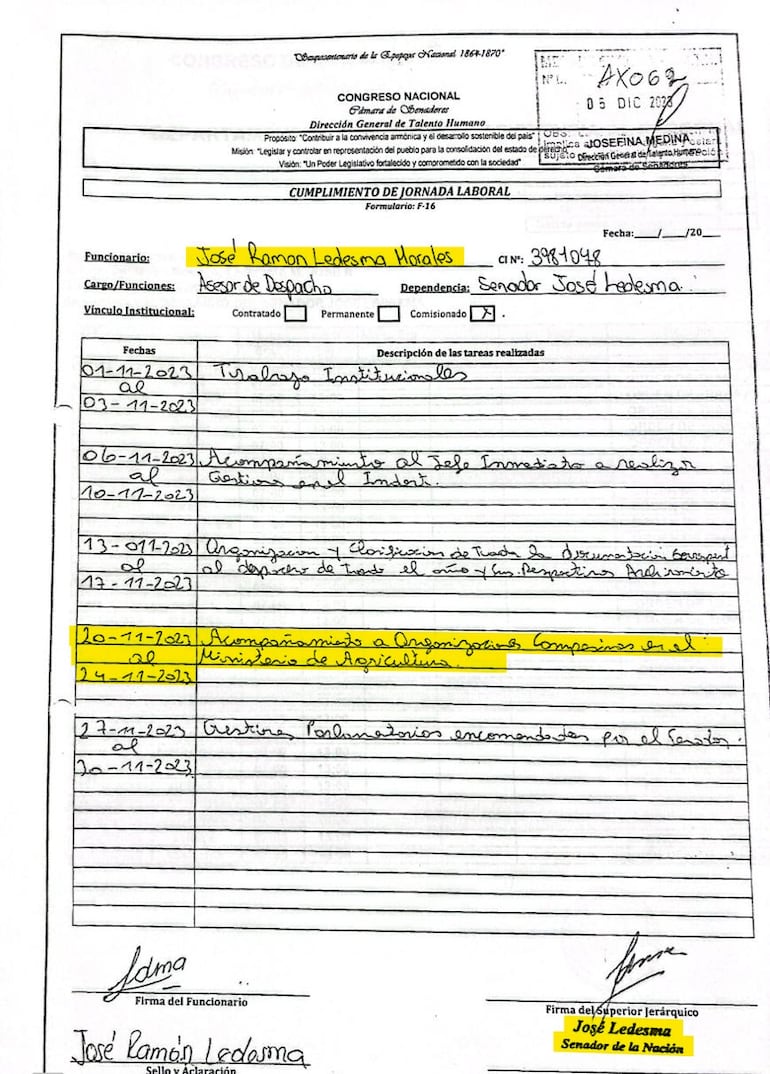 "Sesquicentenario de la Epopeya Nacional 1864-1870"
Nº
AX062
05 DIC 2023
CONGRESO NACIONAL
Cámara de Senadores
Dirección General de Talento Humano
Propósito: "Contribuir a la convivencia armónica y el desarrollo sostenible del país"
Misión: "Legislar y controlar en representación del pueblo para la consolidación del estado de derecho
Visión: "Un Poder Legislativo fortalecido y comprometido con la sociedad"
OBS.
JOSEFINA MEDINA
Dirección General de Talento Humano
Cámara de Senadores
CUMPLIMIENTO DE JORNADA LABORAL
Formulario: F-16
Fecha:___/___/20___
Funcionario: José Ramon Ledesma Morales CI Nº: 3981048
Cargo/Funciones: Asesor de Despacho Dependencia: Senador José Ledesma.
Vínculo Institucional: Contratado Permanente Comisionado X .
Fechas Descripción de las tareas realizadas
01-11-2023 Trabajo Institucionales
al
03-11-2023
06-11-2023 Acompañamiento al Jefe Inmediato a realizar
al Gestiones en el Indert.
10-11-2023
13-011-2023 Organizacion y Clasificacion de Toda la documentacion
al al despacho de Todo el año y sus Respectivos
17-11-2023
20-11-2023 Acompañamiento a Organizaciones Campesinas en el
al Ministerio de Agricultura.
24-11-2023
27-11-2023 Gestiones Parlamentarios encomendadas por el Senador.
al
30-11-2023
Firma del Funcionario
Firma del Superior Jerárquico
José Ledesma
Senador de la Nación
José Ramón Ledesma
Sello y Aclaración